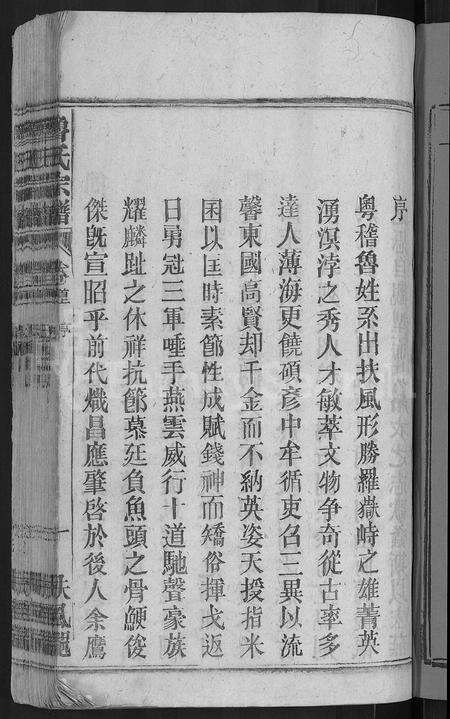 序
粵稽魯姓系出扶風形勝羅嶽峙之雄菁英
湧溟渟之秀人才敏萃文物争奇從古率多
達人薄海更饒碩彥中牟循吏召三異以流
馨東國高賢却千金而不納英姿天授指米
囷以匡時素節性成賦錢神而矯俗揮戈返
日勇冠三軍唾手燕雲威行十道馳聲豪族
耀麟趾之休祥抗節慕廷負魚頭之骨鯁俊
傑旣宣昭乎前代熾昌應肇啓於後人余鷹
魯氏宗譜
卷首 序
一
扶風